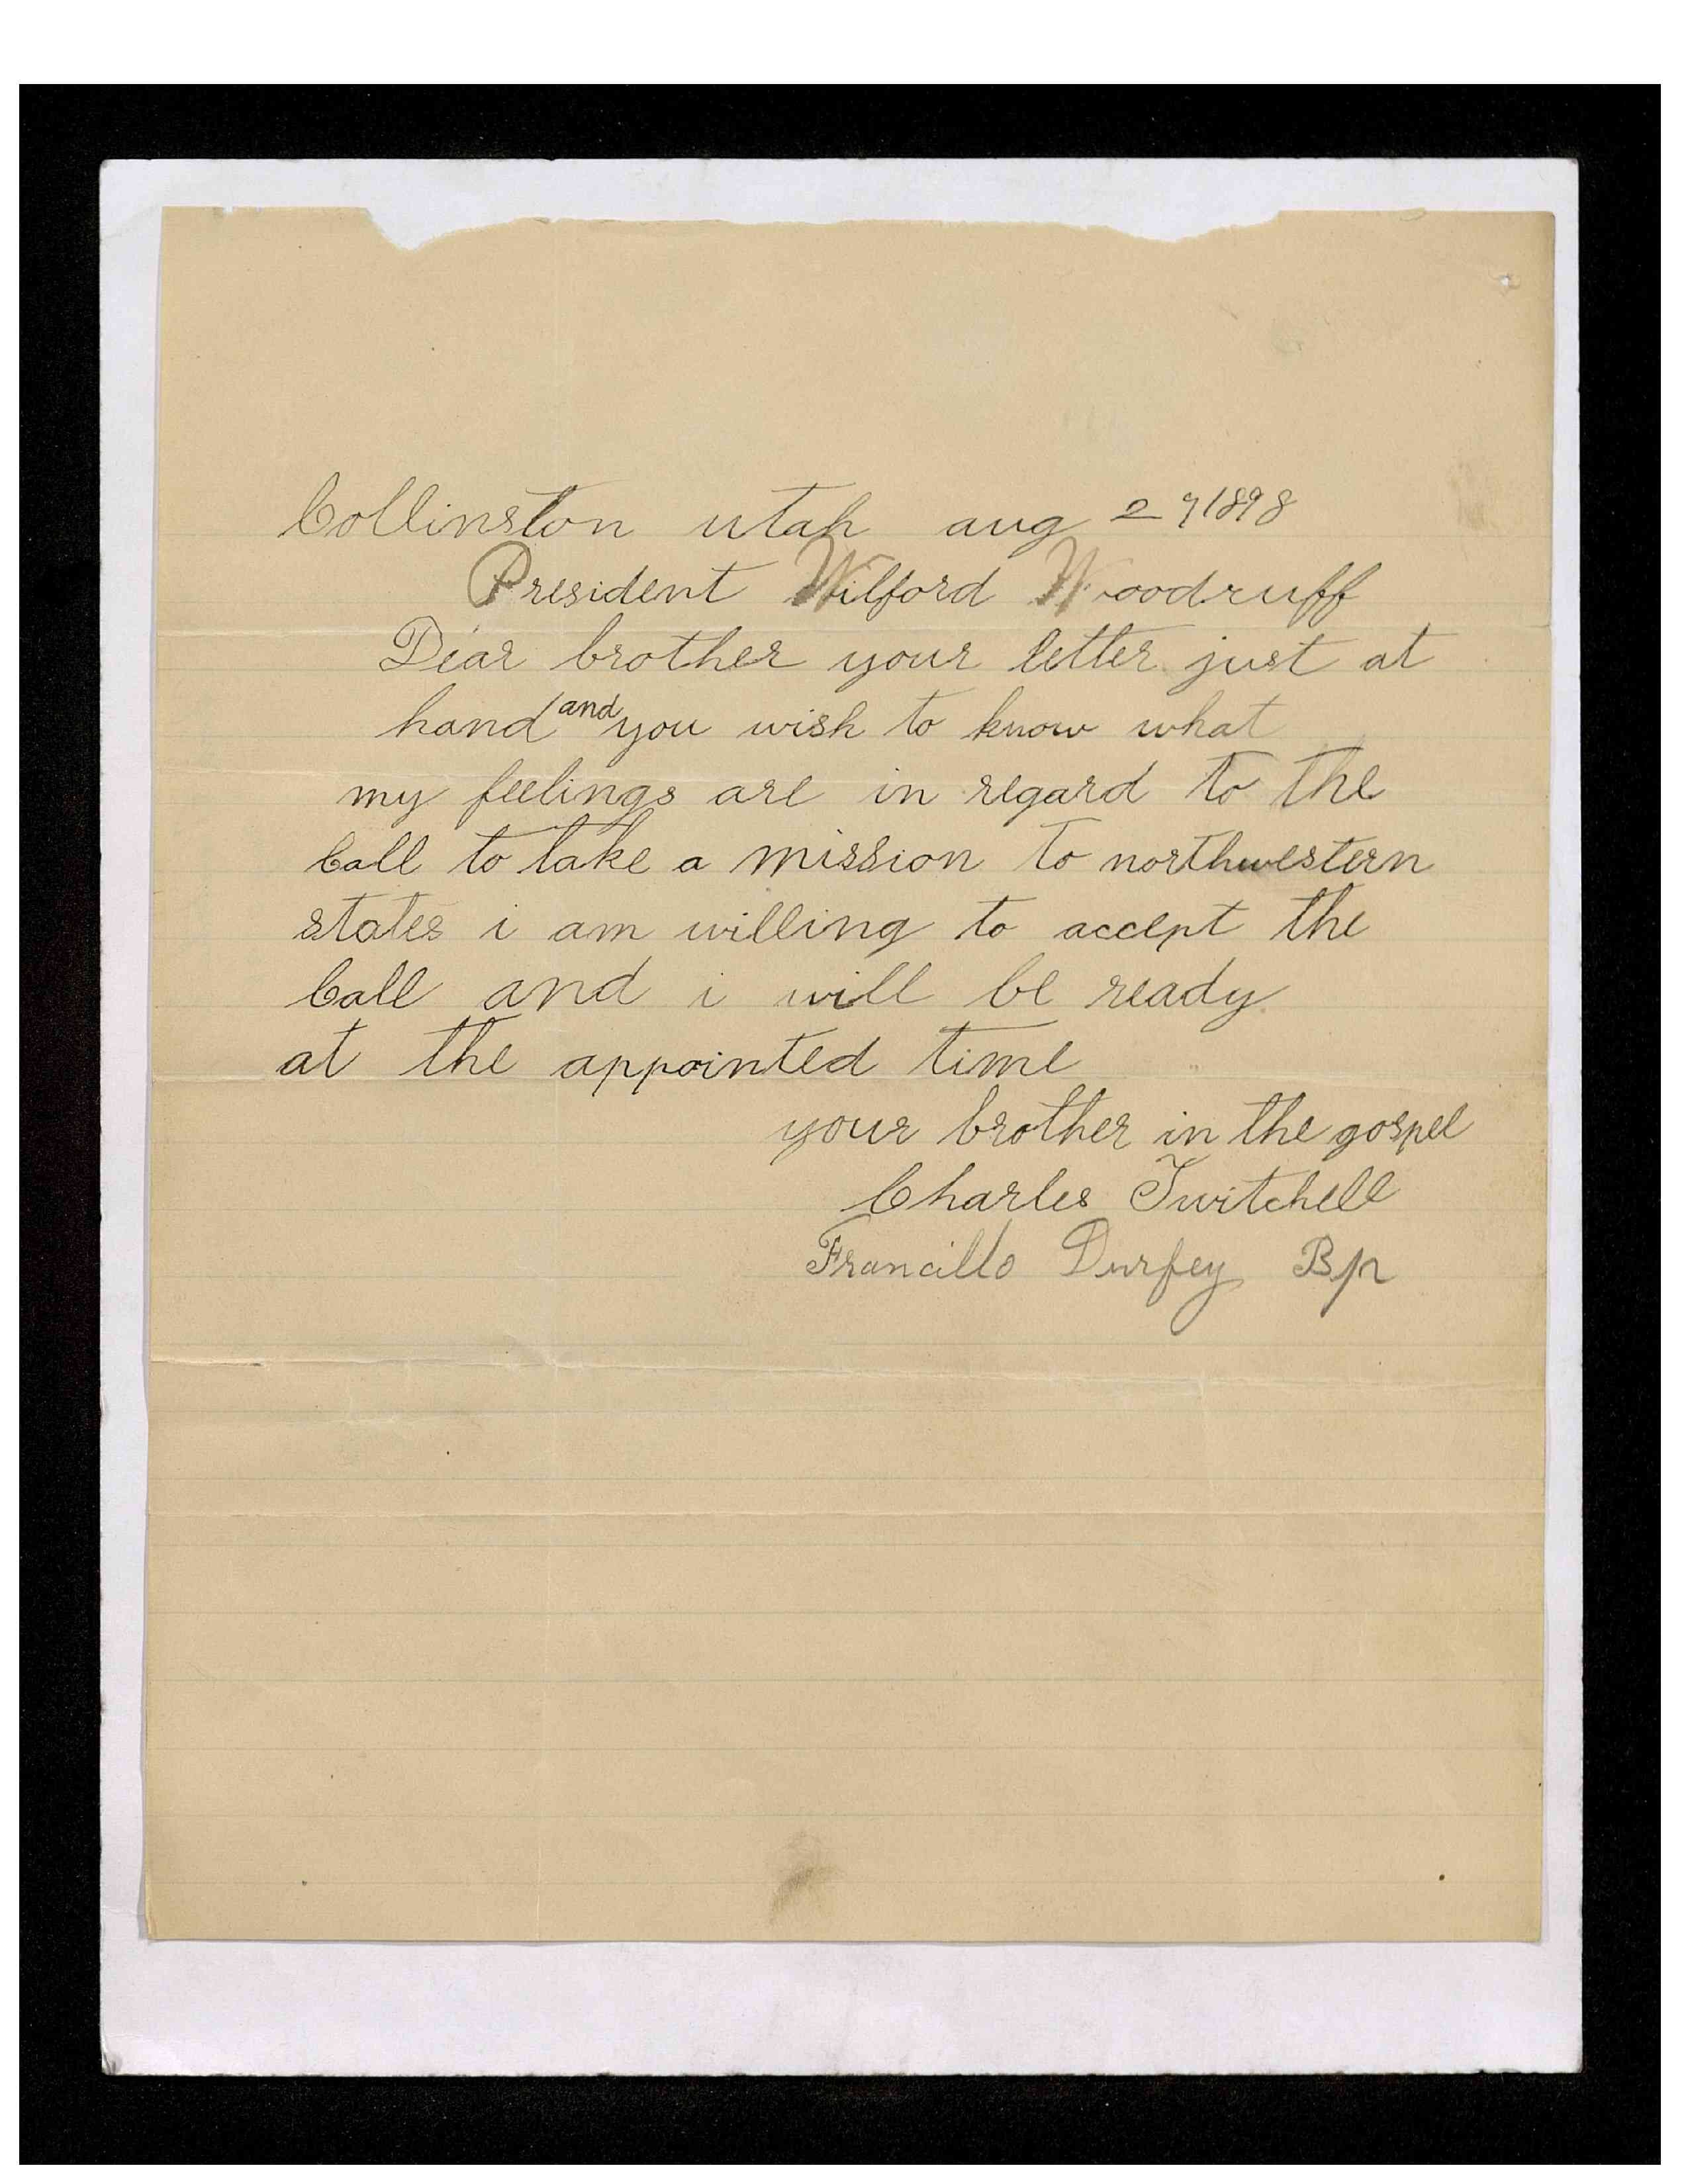 Collinston utah aug 27 1898
President Wilford Woodruff
Dear brother your letter just at
hand and you wish to know what
my feelings are in regard to the
Call to take a mission to northwestern
states i am willing to accept the
Call and i will be ready
at the appointed time
your brother in the gospel
Charles Twitchell
Francillo Durfey Bp